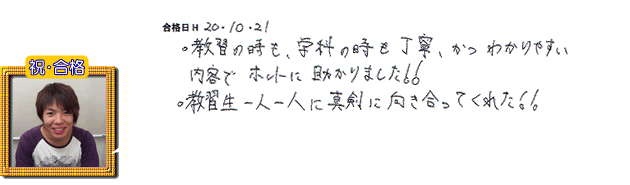 合格日 H 20・10・21
・教習の時も、学科の時も丁寧、かつ わかりやすい
内容で ホントに 助かりました!!
・教習生一人一人に真剣に向き合ってくれた!!
祝・合格